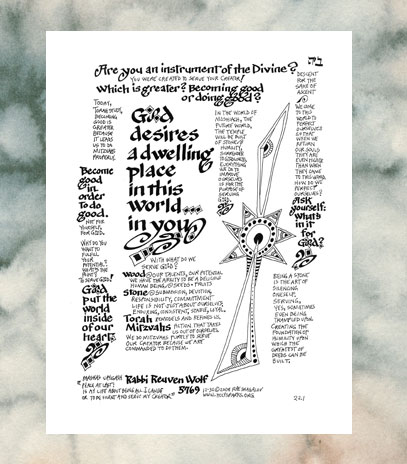 ב״ה
Are you an instrument of the Divine?
YOU WERE CREATED TO SERVE YOUR CREATOR!
Which is greater? Becoming good
or doing good?
DESCENT
FOR THE
SAKE OF
ASCENT
TODAY,
TORAH STUDY,
BECOMING
GOOD IS
GREATER
BECAUSE
IT LEADS
US TO DO
MITZVAHS
Become
good
in
order
to do
good.
NOT FOR
YOURSELF,
FOR GOD.
WHY DO YOU
WANT TO
FULFILL
YOUR
POTENTIAL?
WHAT'S THE
POINT?
TO SERVE GOD!
God
put the
world
inside
of our
hearts.
God
desires
a dwelling
place
in this
world...
in you
IN THE WORLD OF
MOSHIACH, THE
FUTURE WORLD,
THE TEMPLE
WILL BE
BUILT OF
STONE
HUMILITY,
EVERYTHING
WE DO TO
IMPROVE
OURSELVES
IS FOR THE
PURPOSE OF
SERVING
GOD.
WE COME
TO THIS
WORLD TO
PERFECT
OURSELVES
SO THAT
WHEN WE
RETURN
OUR SOULS
THEY ARE
EVEN HIGHER
THAN WHEN
THEY CAME
TO THIS WORLD.
HOW DO WE
PERFECT
OURSELVES?
Ask
yourself:
what's
in it
for
God?
WITH WHAT DO WE
SERVE GOD?
wood OUR TALENTS, OUR POTENTIAL
WE HAVE THE ABILITY TO BE A DELICIOUS
HUMAN BEING, SEEDS + FRUITS
stone SUBMISSION, DEVOTION,
RESPONSIBILITY, COMMITMENT.
LIFE IS NOT JUST ABOUT OURSELVES,
ENDURING, CONSISTENT, STABLE, VITAL.
Torah REMODELS AND REFINES US.
Mitzvahs ACTION THAT TAKES
US OUT OF OURSELVES.
WE DO MITZVAHS PURELY TO SERVE
OUR CREATOR BECAUSE WE ARE
COMMANDED TO DO THEM.
BEING A STONE
IS THE ART OF
SILENCING
ONESELF,
SERVING,
YES, SOMETIMES
EVEN BEING
TRAMPLED UPON.
CREATING THE
FOUNDATION OF
HUMILITY UPON
WHICH THE
GREATEST OF
DEEDS CAN BE
BUILT.
PEACE AT LAST?
IS MY LIFE ABOUT BEING ALL I CAN BE
OR TO BE THERE AND SERVE MY CREATOR"
Rabbi Reuven Wolf
5769
221